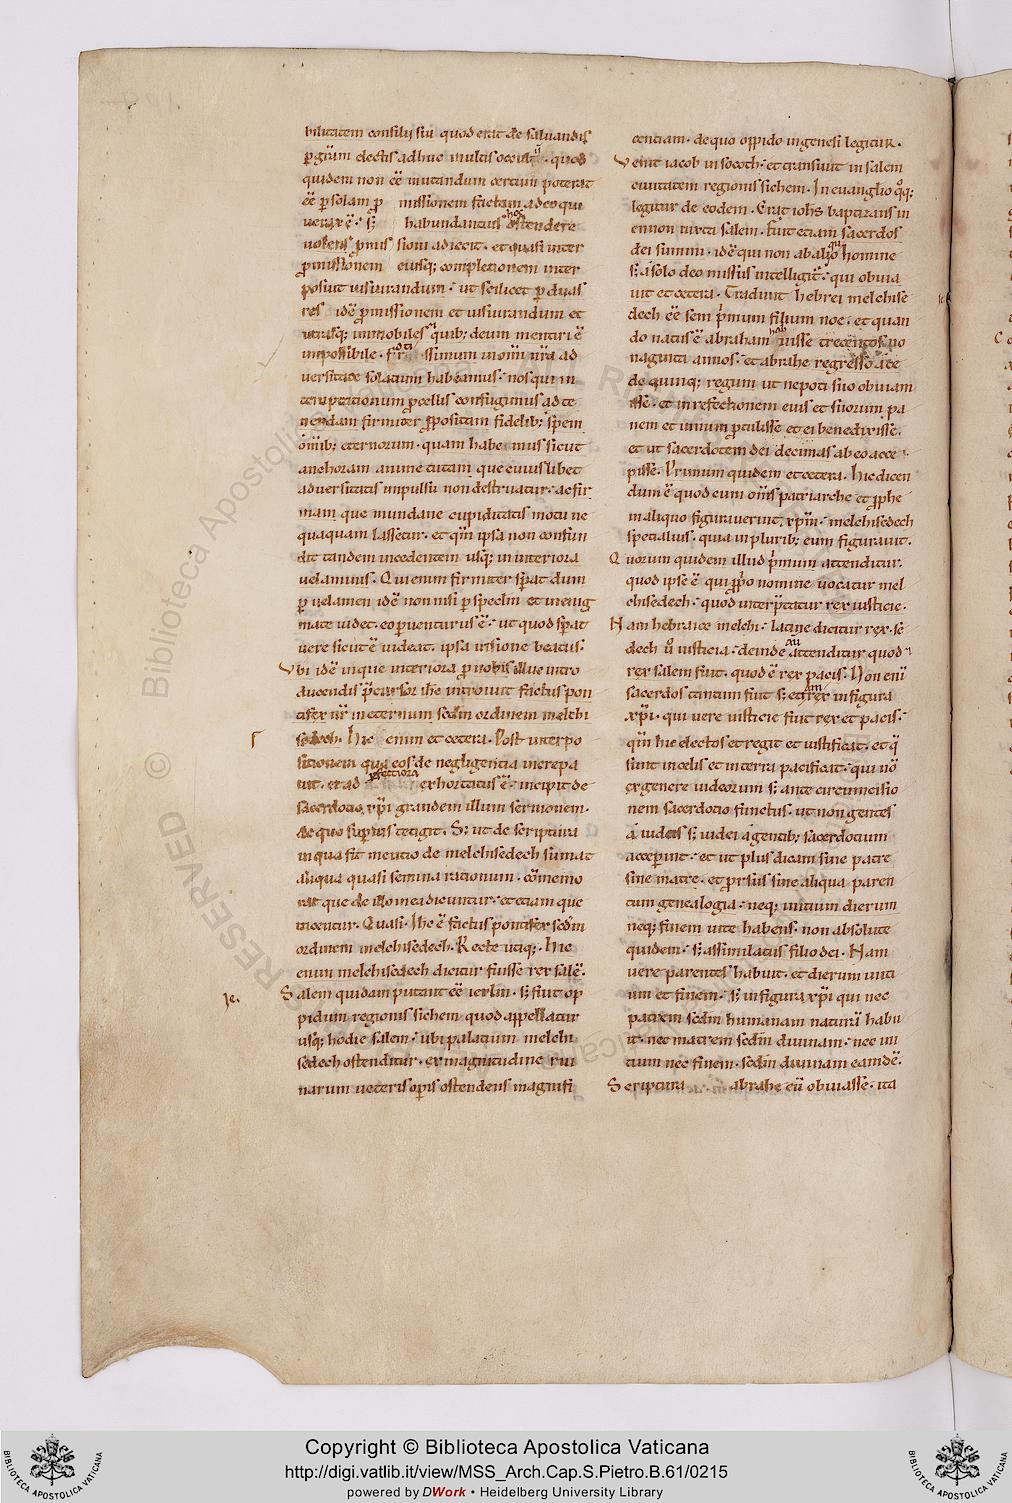 bilitatem consilij sui quod erat de saluandis
p gr̄am electis adhuc multis occult · quod
quidem non eē mutandum certum poterat
eē p solam p missionem factam adeo qui
uerax ē · s; habundantius hoc ostendere
uolens pmis sioni adiecit · et quasi inter
pmissionem eiusq; completionem inter
posuit iusiurandum · ut scilicet p duas
res idē pmissionem et iusiurandum et
utrasq; immobiles quib; deum mentiri ē
impossibile · fortissimum in om̄i nr̄a ad
uersitate solatium habeamus · nos qui in
temptationum pcellis confugimus ad te
nendam firmiter ppositam fidelib; spem
om̄ib; eternorum · quam habemus sicut
anchoram anime tutam que cuius libet
aduersitatis impulsu non destruatur · ac fir
mam que mundane cupiditatis motu ne
quaquam lassetur · et qm̄ ipsa non confun
dit tandem incedentem usq; in interiora
uelaminis · Qui enim firmiter sp̄at dum
p uelamen idē non nisi p speclm̄ et in enig
mate uidet · eo puenturus ē · ut quod sp̄at
uere sicut ē uideat · ipsa uisione beatus ·
Vbi idē in que interiora p nobis illuc intro
ducendis p̄cursor ihc introiuit factus pon
tifex nr̄ in eternum sedm̄ ordinem melchi
sedech · Hic enim et cetera · Post interpo
sitionem qua eos de negligentia increpa
uit · et ad pfectiora exhortatus ē · incipit de
sacerdotio xp̄i grandem illum sermonem ·
de quo supius tetigit · S; ut de scriptura
in qua fit mentio de melchisedech sumat
aliqua quasi semina rationum · cōmemo
rat que de illo in ea dicuntur · et etiam que
tacentur · Quasi · Ihc ē factus pontifex sedm̄
ordinem melchisedech · Recte utiq; · Hic
enim melchisedech dicitur fuisse rex salē ·
Je.
Salem quidam putant eē ierlm̄ · s; fuit op
pidum regionis sichem quod appellatur
usq; hodie salem · ubi palatium melchi
sedech ostenditur · ex magnitudine rui
narum ueteris opis ostendens magnifi
centiam · de quo oppido in genesi legitur ·
Venit iacob in socoth · et transiuit in salem
ciuitatem regionis sichem · In euanglio qoq;
legitur de eodem · Erat iohs baptizans in
ennon iuxta salem · Fuit etiam sacerdos
dei summi · idē qui non ab aliquo homine
s; a solo deo missus intelligit̄ · qui obuia
uit et cetera · Tradunt hebrei melchise
dech eē sem p̄mum filium noe · et quan
do natus ē abraham habuisse trecentos no
naginta annos · et abrahe regresso a ce
de quinq; regum ut nepoti suo obuiam
isse · et in refectionem eius et suorum pa
nem et uinum ptulisse et ei benedixisse ·
et ut sacerdotem dei decimas ab eo acce
pisse · Primum quidem et cetera · Hic dicen
dum ē quod cum om̄s patriarche et pphe
in aliquo figurauerint xp̄m · melchisedech
specialius · quia in plurib; eum figurauit ·
Quorum quidem illud p̄mum attenditur ·
quod ipse ē qui pp̄o nomine uocatur mel
chisedech · quod interp̄tatur rex iusticie ·
Nam hebraice melchi · latine dicitur rex · se
dech u̇ iusticia · deinde autē attenditur quod
rex salem fuit · quod ē rex pacis · Non eni
sacerdos tantum fuit s; etiam rex in figura
xp̄i · qui uere iusticie fuit rex et pacis ·
qm̄ hic electos et regit et iustificat · et q̄
sunt in celis et in terra pacificat · qui nō
ex genere iudeorum s; ante circumcisio
nem sacerdotio functus · ut non gentes
a iudeis s; iudei a gentib; sacerdotium
acceperint · et ut plus dicam sine patre
sine matre · et prsus sine aliqua paren
tum genealogia · neq; initium dierum
neq; finem uite habens · non absolute
quidem · s; assimilatus filio dei · Nam
uere parentes habuit · et dierum initi
um et finem · s; in figura xp̄i qui nec
patrem sedm̄ humanam naturā habu
it · nec matrem sedm̄ diuinam · nec ini
tium nec finem · sedm̄ diuinam eamdē ·
Scriptura abrahe eū obuiasse · ita
Copyright © Biblioteca Apostolica Vaticana
http://digi.vatlib.it/view/MSS_Arch.Cap.S.Pietro.B.61/0215
powered by DWork • Heidelberg University Library